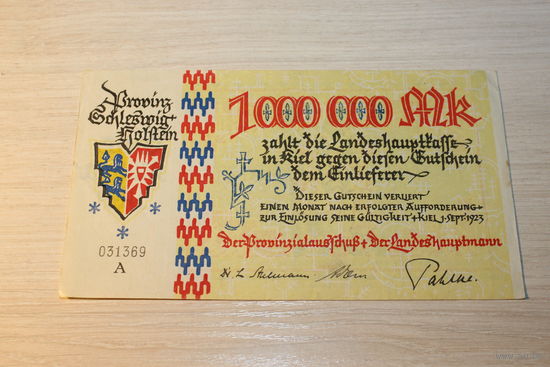 Provinz
Schleswig-
Holstein
031369
A
1000000 Mk
zahlt die Landeshauptkasse
in Kiel gegen diesen Gutschein
dem Einlieferer
DIESER GUTSCHEIN VERLIERT
EINEN MONAT NACH ERFOLGTER AUFFORDERUNG
ZUR EINLÖSUNG SEINE GÜLTIGKEIT + KIEL 1. SEPT. 1923
Der Provinzialausschuß + Der Landeshauptmann
Pahlke.